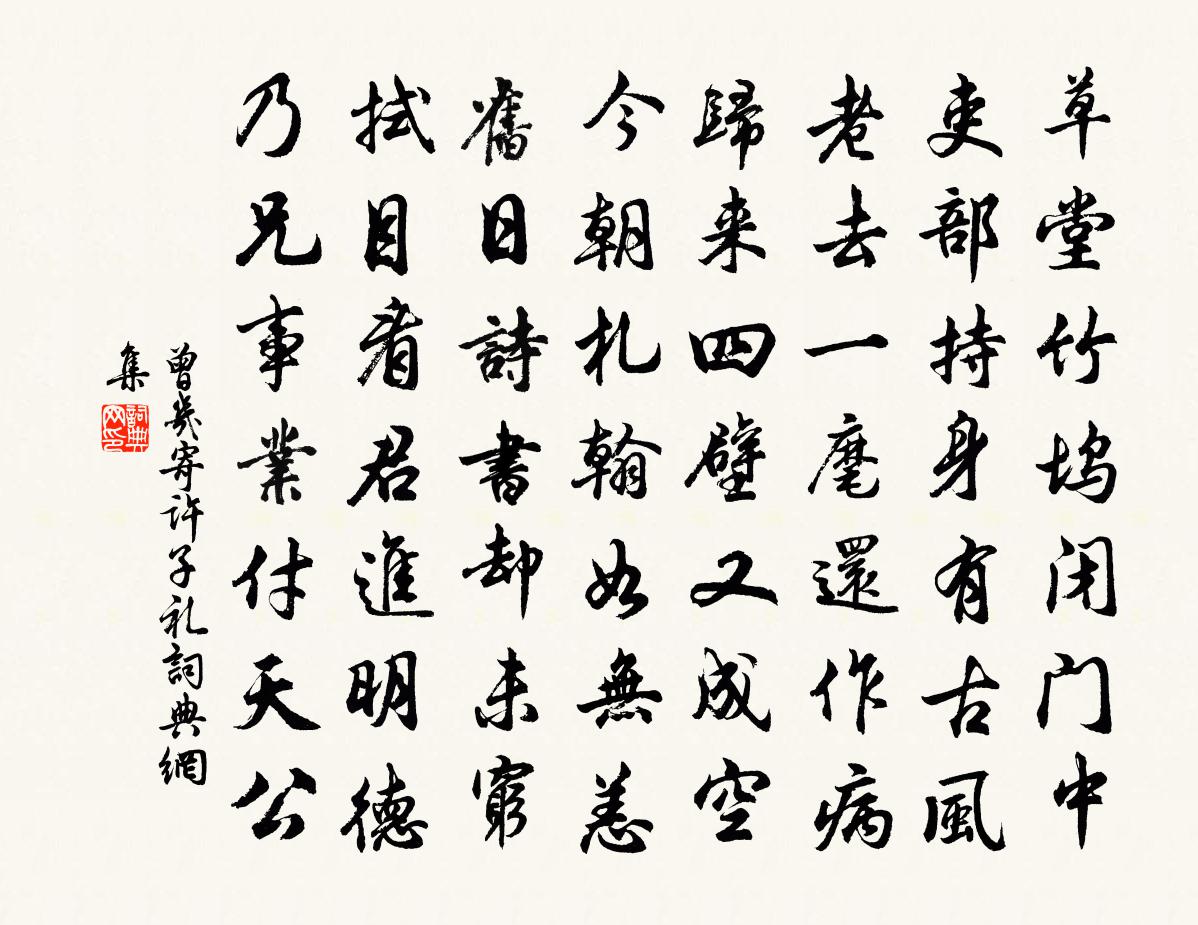 草堂竹坞闭门中
吏部持身有古風
老去一麾還作病
歸来四壁又成空
今朝札翰如無恙
舊日詩書却未窮
拭目看君進明德
乃兄事業付天公
曾幾寄許子礼詞典網
集
詞典
网印